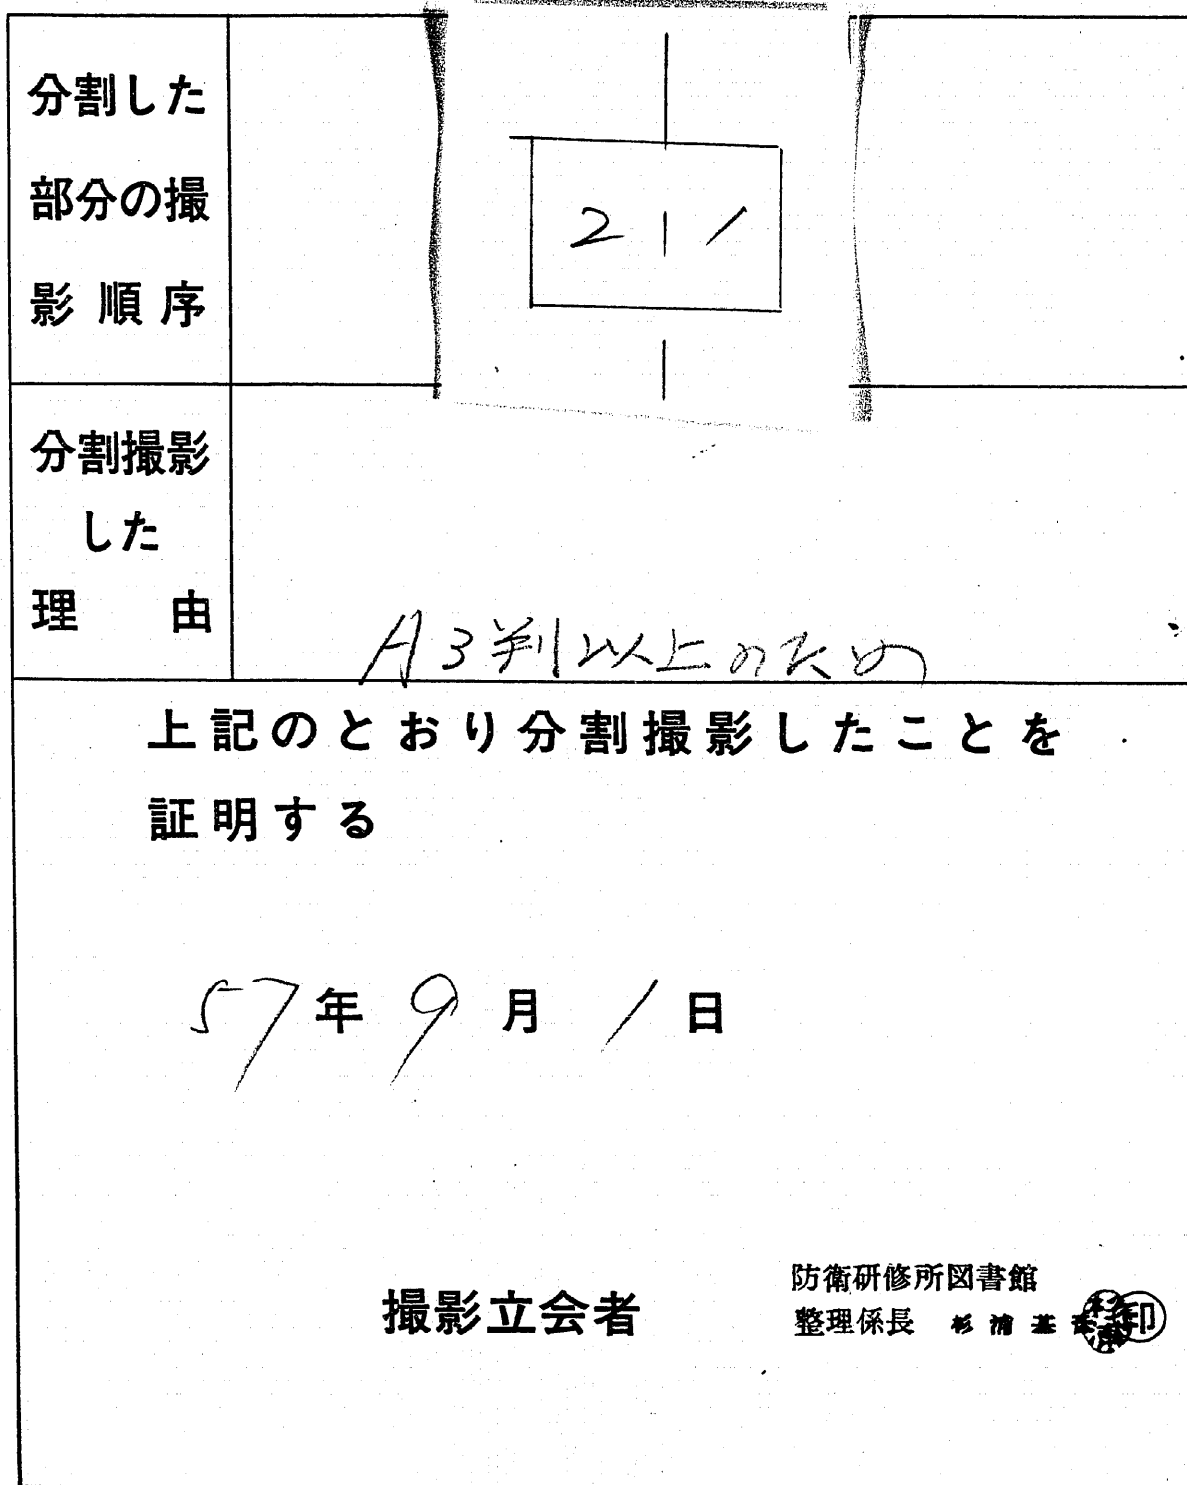 分割した
部分の撮
影順序
2 1
分割撮影
した
理由
A3判以上のため
上記のとおり分割撮影したことを
証明する
57年9月1日
防衛研修所図書館
撮影立会者
整理係長 杉浦
印